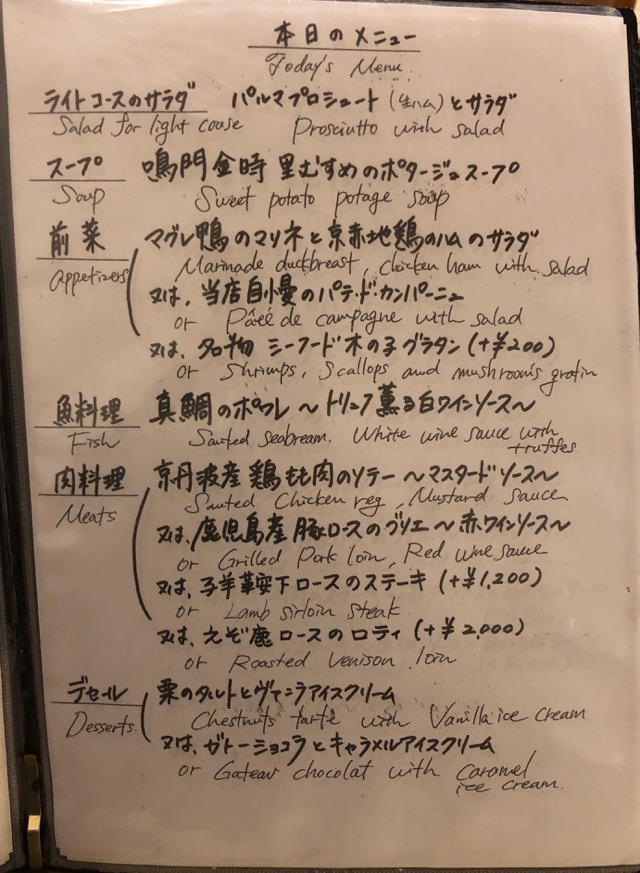 本日のメニュー
Today's Menu
ライトコースのサラダ パルマプロシュート(生ハム)とサラダ
Salad for light couse Prosciutto with salad
スープ 鳴門金時 里むすめのポタージュスープ
Soup Sweet potato potage soup
前菜 マグレ鴨のマリネと京赤地鶏のハムのサラダ
appetizers Marinade duckbreast, chicken ham with salad
又は、当店自慢のパテ・ド・カンパーニュ
or Pâté de campagne with salad
又は、名物 シーフード木の子グラタン(+¥200)
or Shrimps, Scallops and mushrooms gratin
魚料理 真鯛のポワレ〜トリュフ薫る白ワインソース〜
Fish Sauted seabream. White wine sauce with
truffes
肉料理 京丹波産 鶏もも肉のソテー〜マスタードソース〜
Meats Sauted Chicken reg, Mustard sauce
又は、鹿児島産 豚ロースのグリエ〜赤ワインソース〜
or Grilled Pork loin, Red wine sauce
又は、子羊ロースのステーキ(+¥1,200)
or Lamb sirloin steak
又は、えぞ鹿ロースのロティ(+¥2,000)
or Roasted venison loin
デセール 栗のタルトとヴァニラアイスクリーム
Desserts Chestnuts tarte with Vanilla ice cream
又は、ガトーショコラとキャラメルアイスクリーム
or Gateau chocolat with Caramel
ice cream.